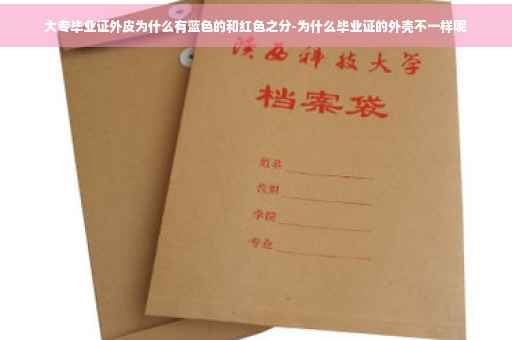 大专毕业证外皮为什么有蓝色的和红色之分-为什么毕业证的外壳不一样呢
陕西科技大学
档案袋
姓名
学院
专业